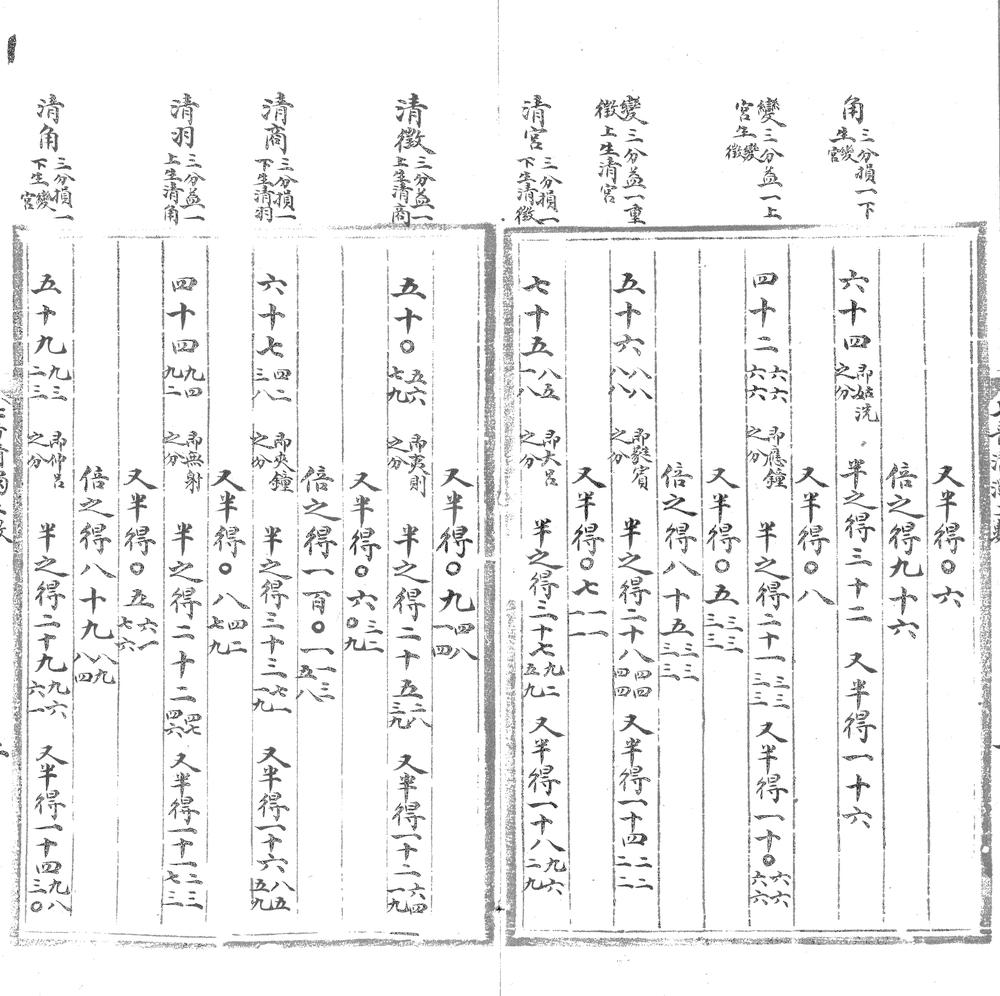 又半得〇六
倍之得九十六
角三分損一下生變宮 六十四即姑洗之分 半之得三十二 又半得一十六
又半得〇八
變宮三分益一上生變徵 四十二六六六六 即應鐘之分 半之得二十一三三三三 又半得一十〇六六六六
又半得〇五三三三三
倍之得八十五三三三三
變徵三分益一重上生清宮 五十六八八八八 即蕤賓之分 半之得二十八四四四四 又半得一十四二二二二
又半得〇七一一一一
清宮三分損一下生清徵 七十五八五一八 即大呂之分 半之得三十七九二五九 又半得一十八九六二九
又半得〇九四八一四
清徵三分益一上生清商 五十〇五六七九 即夷則之分 半之得二十五二八三九 又半得一十二六四一九
又半得〇六三二〇九
倍之得一百〇一一三五八
清商三分損一下生清羽 六十七四二三八 即夾鐘之分 半之得三十三七一一九 又半得一十六八五五九
又半得〇八四二七九
清羽三分益一上生清角 四十四九四九二 即無射之分 半之得二十二四七四六 又半得一十一二三七三
又半得〇五六一七六
倍之得八十九八九八四
清角三分損一下生變宮 五十九九三二三 即仲呂之分 半之得二十九九六六一 又半得一十四九八三〇